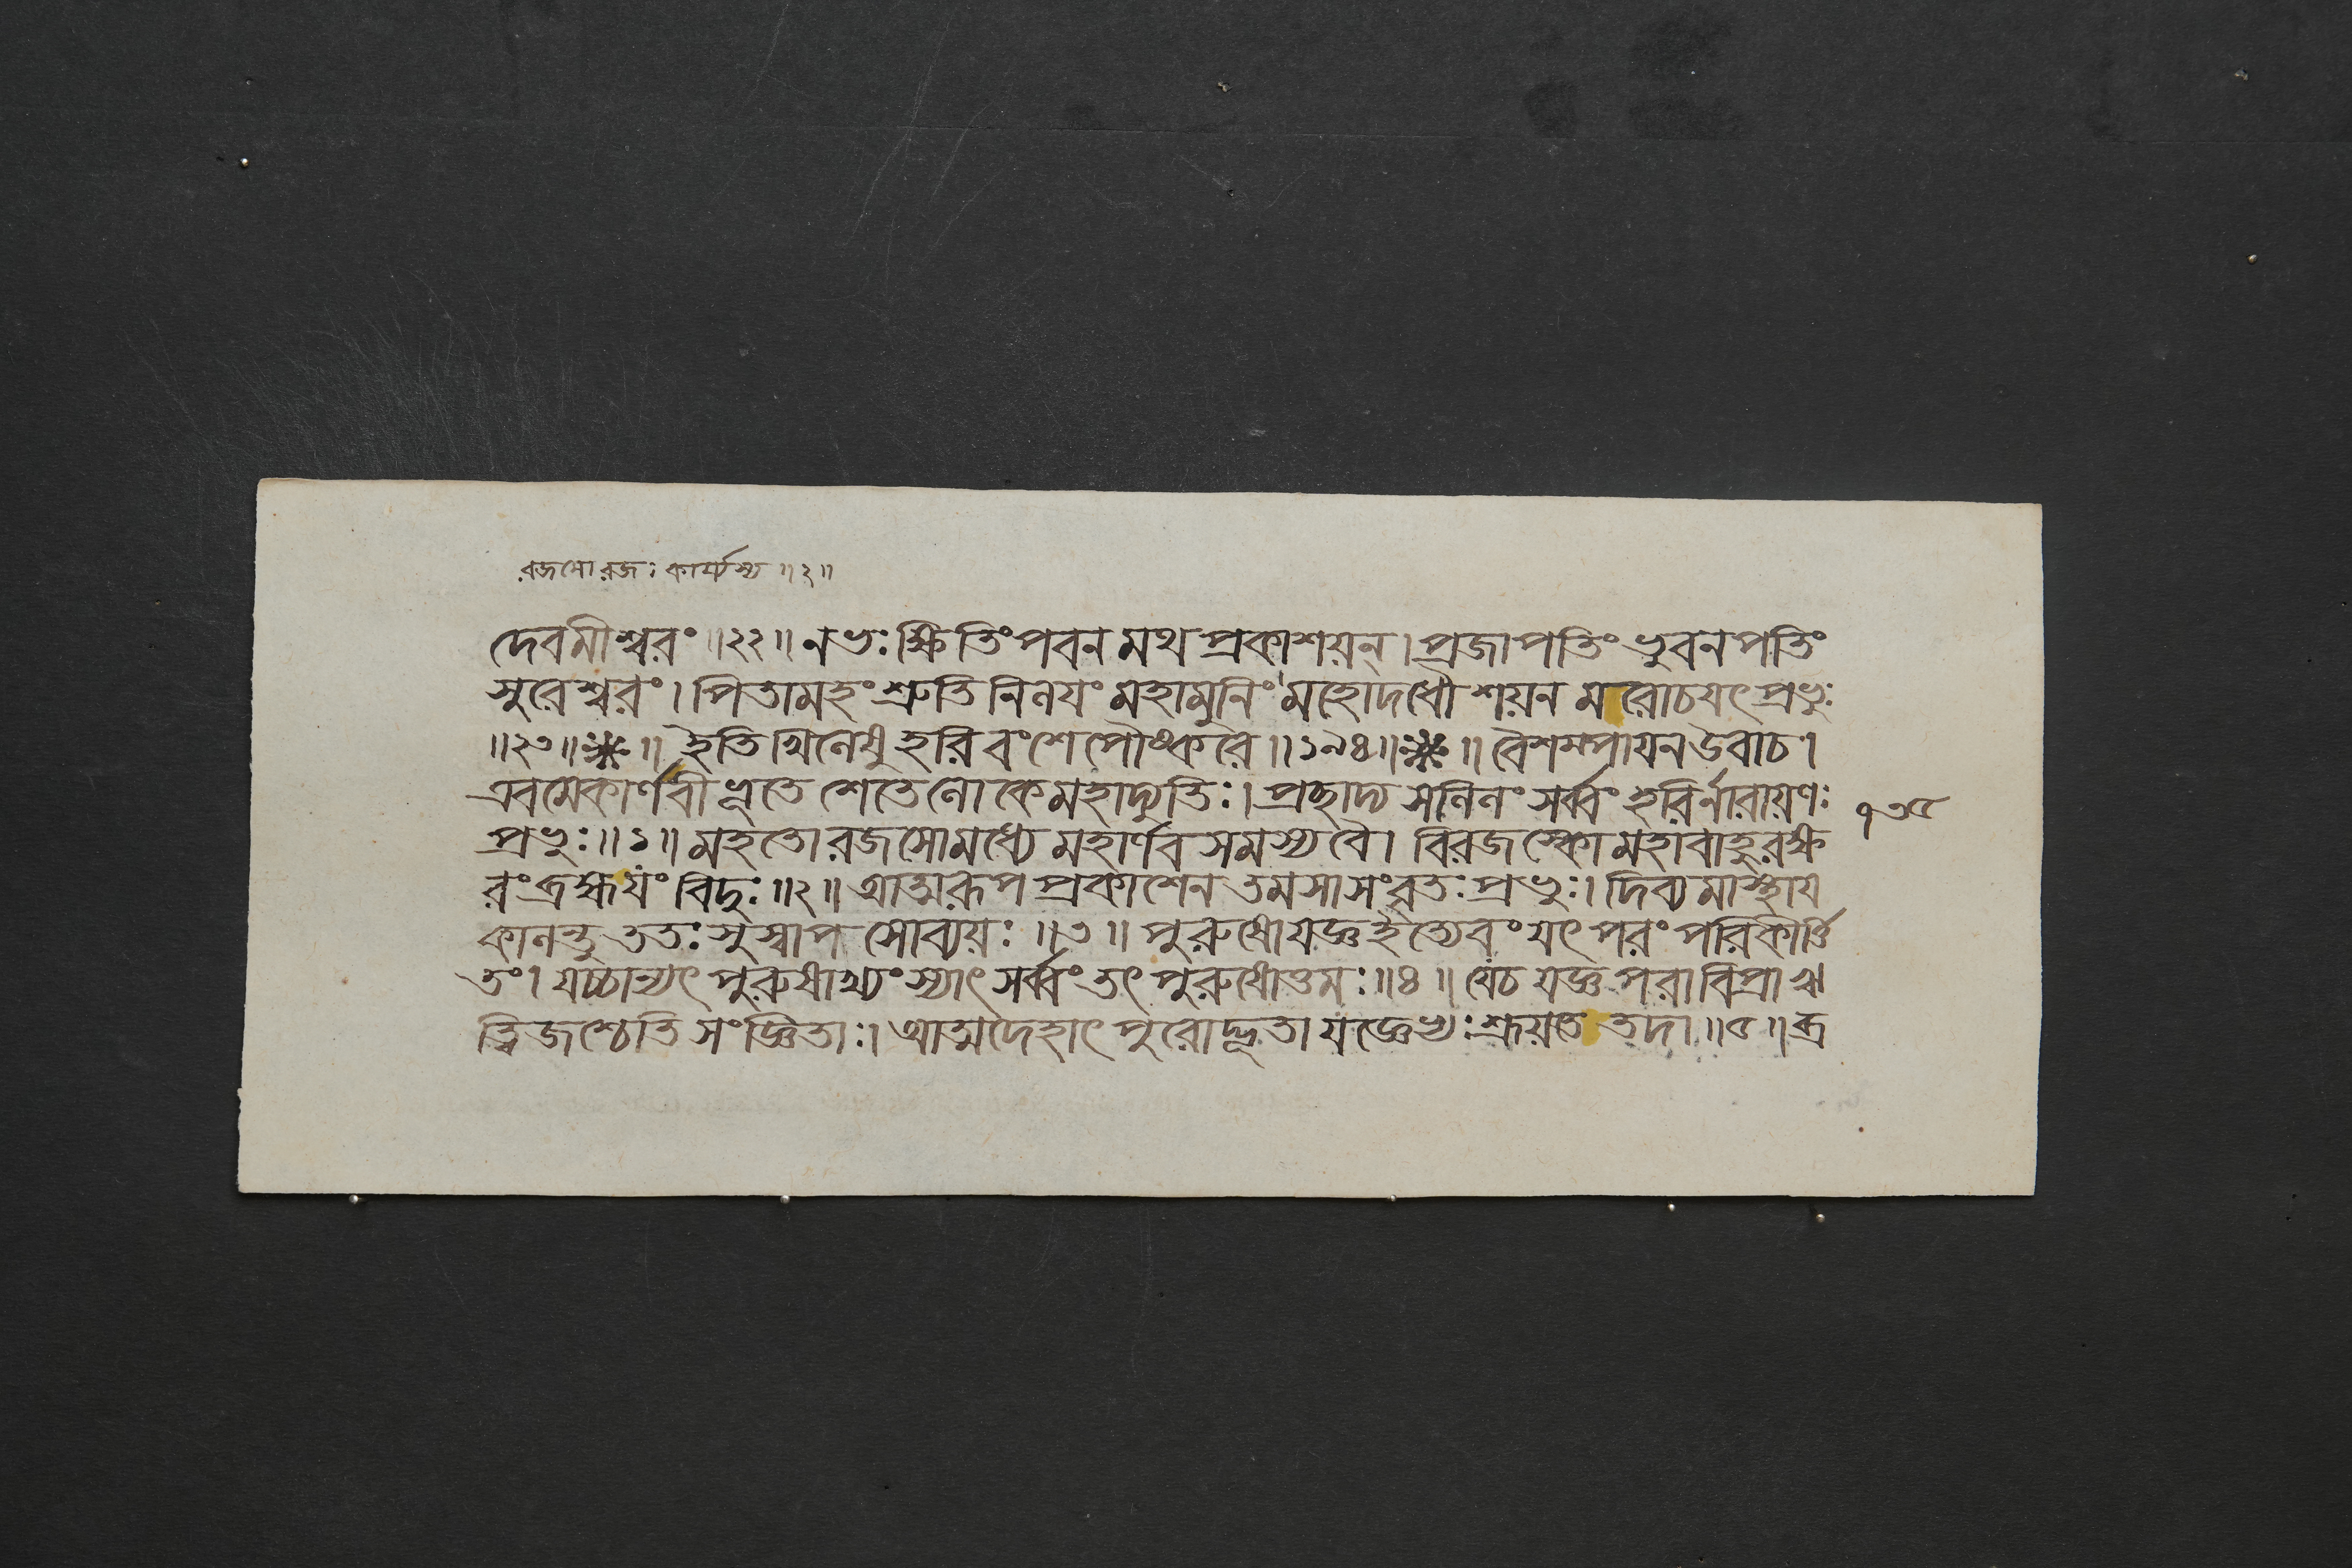 রজসোরজঃ কার্য্যস্য ॥২॥
দেবমীশ্বরং ॥২২॥ নভঃ ক্ষিতিং পবন মথ প্রকাশয়ন্। প্রজাপতিং ভুবনপতিং
সুরেশ্বরং। পিতামহং শ্রুতি নিলয়ং মহামুনিং মহোদধৌ শয়ন মরোচয়ৎ প্রভুঃ
॥২৩॥ ॥ ইতি খিলেষু হরিবংশে পৌষ্করে ॥১৯৪॥ ॥ বৈশম্পায়ন উবাচ।
এবমেকার্ণবীভূতে শেতেলোকে মহাদ্যুতিঃ। প্রছাদ্য সলিলং সর্ব্বং হরির্নারায়ণঃ
প্রভুঃ ॥১॥ মহতো রজসোমধ্যে মহার্ণব সমস্য বৈ। বিরজস্কো মহাবাহুরক্ষ
রং ব্রহ্মযং বিদুঃ ॥২॥ আত্মরূপ প্রকাশেন তমসা সংবৃতঃ প্রভুঃ। দিব্য মাস্থায়
কালন্তু ততঃ সুস্বাপ সোব্যয়ঃ ॥৩॥ পুরুষো যজ্ঞ ইত্যেবং যৎ পরং পরিকীর্ত্তি
তং। যচ্চান্যৎ পুরুষাখ্যং স্যাৎ সর্ব্বং তৎ পুরুষোত্তমঃ ॥৪॥ যেচ যজ্ঞ পরা বিপ্রা ঋ
ত্বিজশ্চেতি সংজ্ঞিতাঃ। আত্মদেহাৎ পুরোদ্ভূতা যজ্ঞেভ্যঃ শ্রূয়তে তদা ॥৫॥ ব্র
৭৩৫